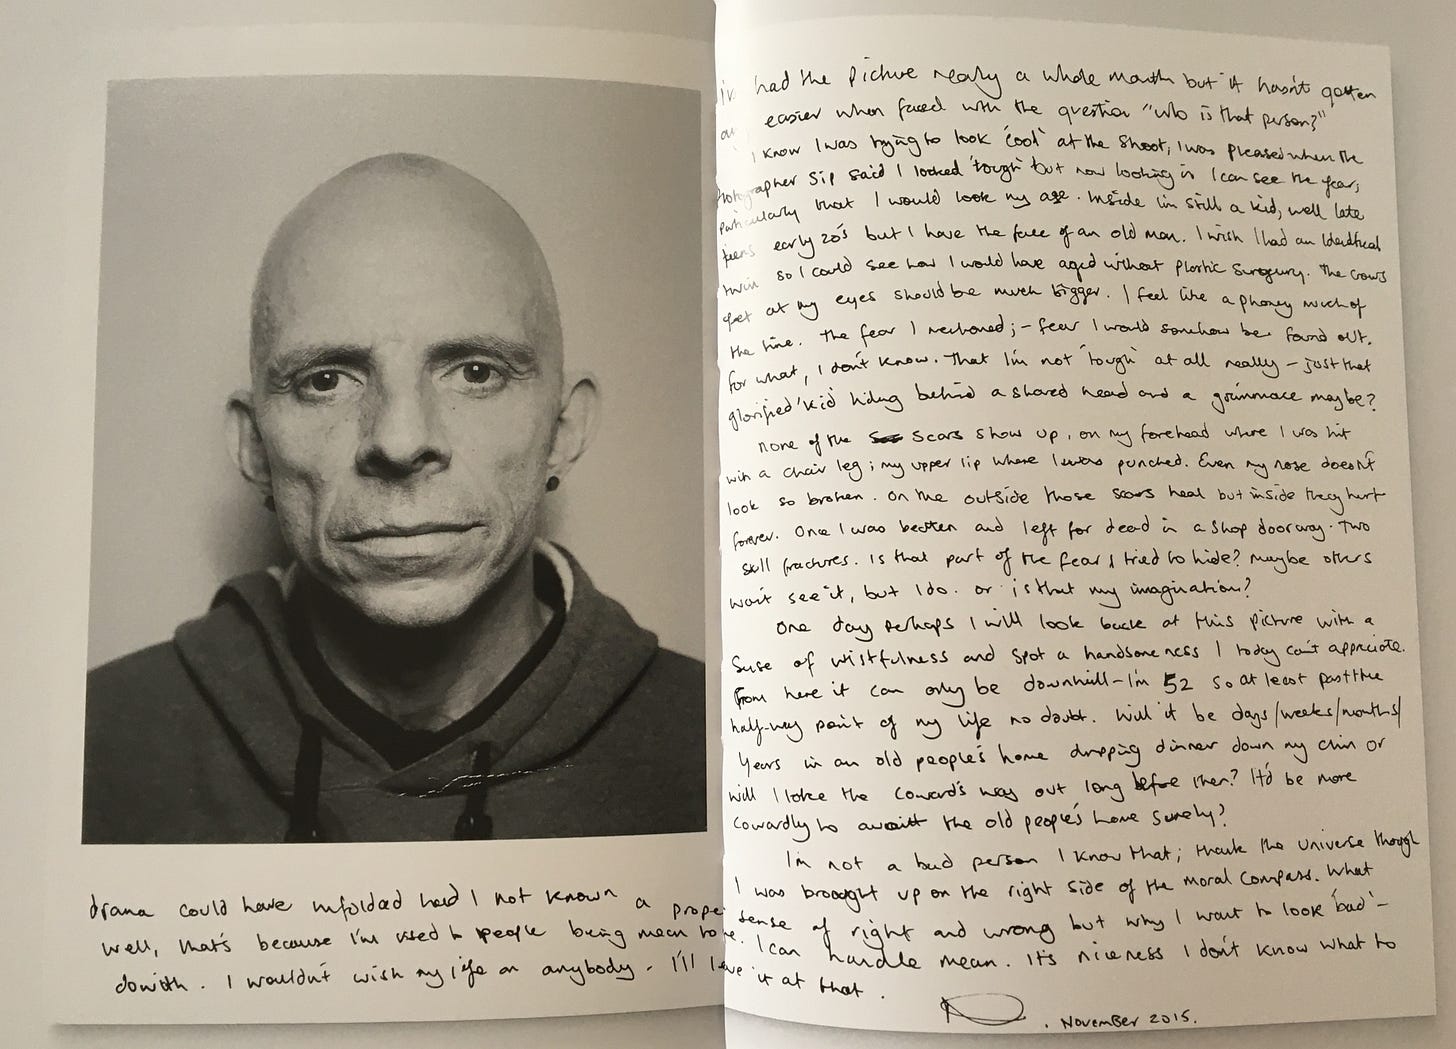 I've had the picture nearly a whole month but it hasn't gotten
any easier when faced with the question "who is that person?"
I know I was trying to look 'cool' at the shoot, I was pleased when the
Photographer Sip said I looked 'tough' but now looking in I can see the fear,
particularly that I would look my age. Inside I'm still a kid, well late
teens early 20's but I have the face of an old man. I wish I had an Identical
twin so I could see how I would have aged without Plastic Surgury. The crows
feet at my eyes should be much bigger. I feel like a phoney much of
the time. The fear I mentioned; - fear I would somehow be found out.
for what, I don't know. That I'm not 'tough' at all really - just that
glorified 'kid' hiding behind a shaved head and a grimmace maybe?
None of the scars show up, on my forehead where I was hit
with a chair leg; my upper lip where I was punched. Even my nose doesn't
look so broken. On the outside those scars heal but inside they hurt
forever. Once I was beaten and left for dead in a shop doorway. Two
skull fractures. Is that part of the fear I tried to hide? Maybe others
won't see it, but I do. or is that my imagination?
One day Perhaps I will look back at this picture with a
sense of wistfulness and spot a handsomeness I today can't appreciate.
From here it can only be downhill - I'm 52 so at least past the
half-way point of my life no doubt. Will it be days/weeks/months/
Years in an old people's home dripping dinner down my chin or
will I take the coward's way out long before then? It'd be more
cowardly to await the old people's home surely?
I'm not a bad person I know that; thank the universe though
I was brought up on the right side of the moral compass. What
drama could have unfolded had I not known a proper sense of right and wrong but why I want to look 'bad' -
well, that's because I'm used to people being mean to me. I can handle mean. It's niceness I don't know what to
do with. I wouldn't wish my life on anybody - I'll leave it at that.
. November 2015.